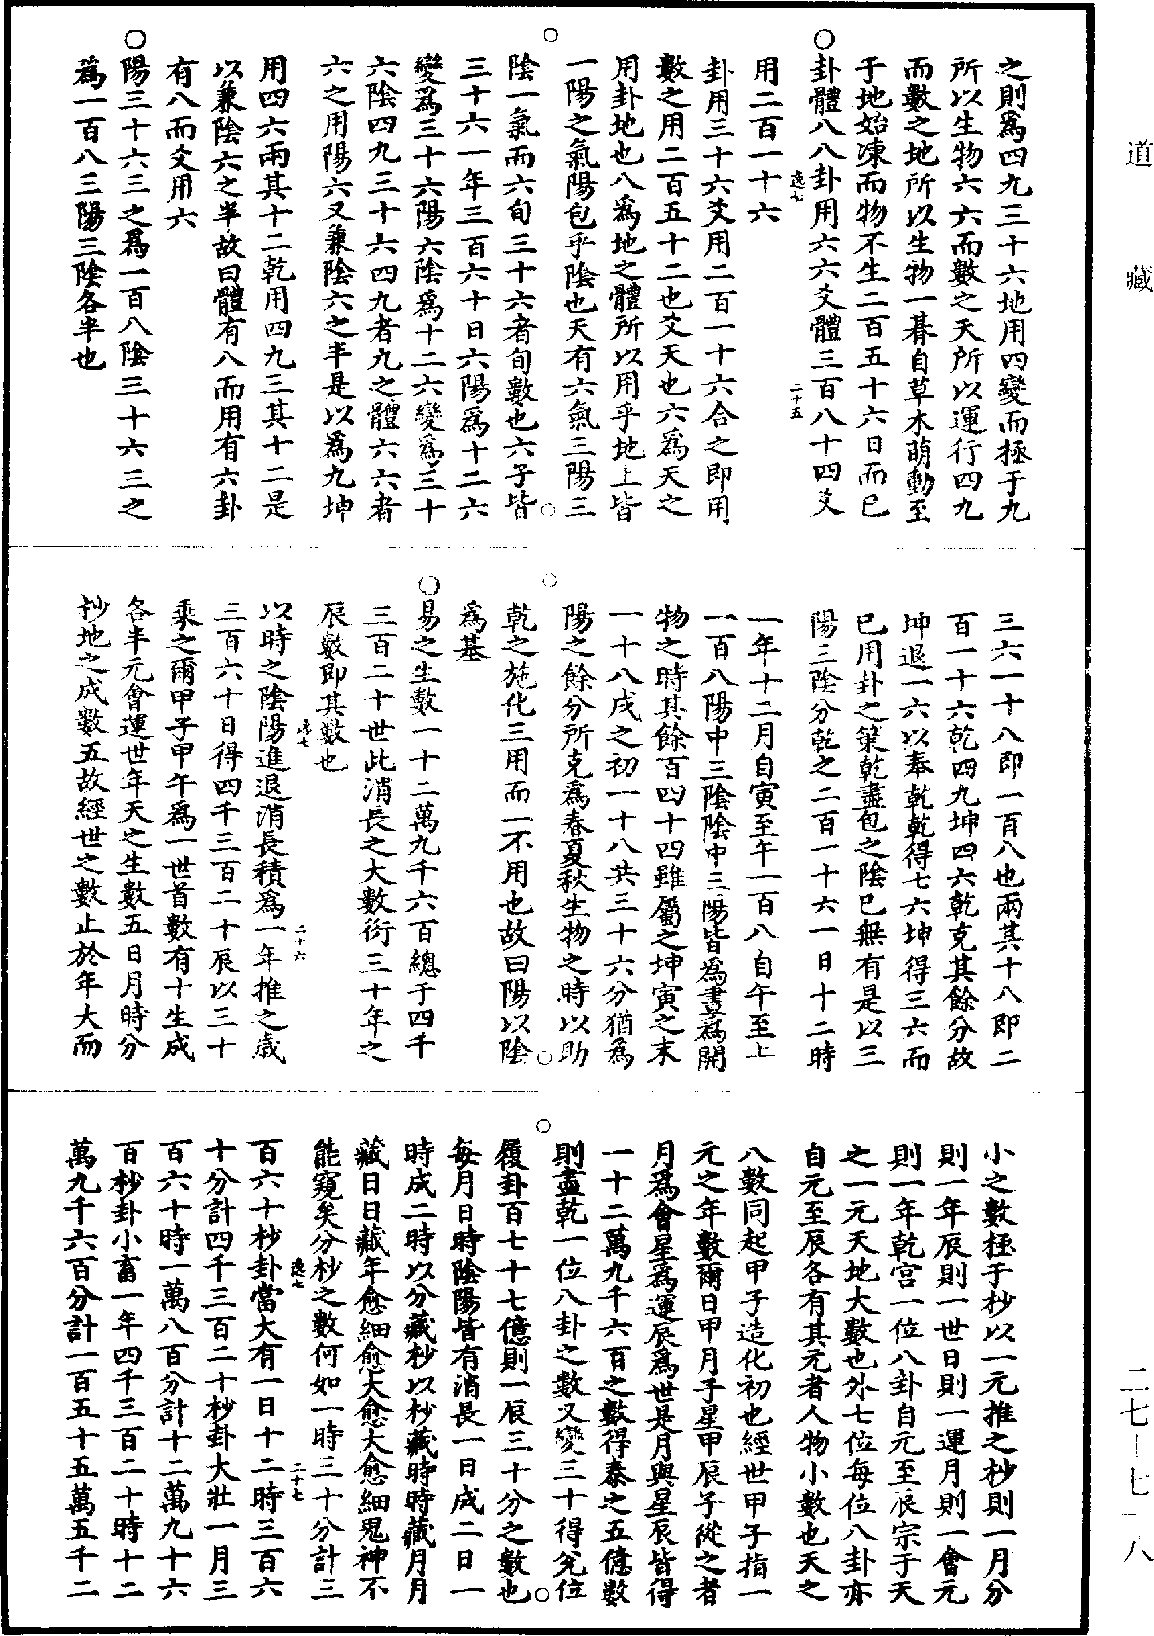 道藏
之則爲四九三十六地用四變而極于九
所以生物六六而數之天所以運行四九
而數之地所以生物一朞自草木萌動至
于地始凍而物不生二百五十六日而已
○卦體八八卦用六六爻體三百八十四爻
逸七
二十五
用二百一十六
卦用三十六爻用二百一十六合之即用
數之用二百五十二也爻天也六爲天之
用卦地也八爲地之體所以用乎地上皆
一陽之氣陽包乎陰也天有六氣三陽三
陰一氣而六旬三十六者旬數也六子皆
三十六一年三百六十日六陽爲十二六
變爲三十六陽六陰爲十二六變爲三十
六陰四九三十六四九者九之體六六者
六之用陽六又兼陰六之半是以爲九坤
用四六兩其十二乾用四九三其十二是
以兼陰六之半故曰體有八而用有六卦
有八而爻用六
○陽三十六三之爲一百八陰三十六三之
爲一百八三陽三陰各半也
三六一十八即一百八也兩其十八即二
百一十六乾四九坤四六乾克其餘分故
坤退一六以奉乾乾得七六坤得三六而
已用卦之策乾盡包之陰已無有是以三
陽三陰分乾之二百一十六一日十二時
一年十二月自寅至午一百八自午至戌
一百八陽中三陰陰中三陽皆爲晝爲開
物之時其餘百四十四雖屬之坤寅之末
一十八戌之初一十八共三十六分猶爲
陽之餘分所克爲春夏秋生物之時以助
乾之施化三用而一不用也故曰陽以陰
爲基
○易之生數一十二萬九千六百總于四千
三百二十世此消長之大數衍三十年之
辰數即其數也
逸七
二十六
以時之陰陽進退消長積爲一年推之歲
三百六十日得四千三百二十辰以三十
乘之爾甲子甲午爲一世首數有十生成
各半元會運世年天之生數五日月時分
秒地之成數五故經世之數止於年大而
小之數極于秒以一元推之秒則一月分
則一年辰則一世日則一運月則一會元
則一年乾宮一位八卦自元至辰宗于天
之一元天地大數也外七位每位八卦亦
自元至辰各有其元者人物小數也天之
八數同起甲子造化初也經世甲子指一
元之年數爾日甲月子星甲辰子從之者
月爲會星爲運辰爲世是月與星辰皆得
一十二萬九千六百之數得泰之五億數
則盡乾一位八卦之數又變三十得兌位
履卦百七十七億則一辰三十分之數也
每月日時陰陽皆有消長一日成二日一
時成二時以分藏秒以秒藏時時藏月月
藏日日藏年愈細愈大愈大愈細鬼神不
能窺矣分秒之數何如一時三十分計三
逸七
二十七
百六十秒卦當大有一日十二時三百六
十分計四千三百二十秒卦大壯一月三
百六十時一萬八百分計十二萬九十六
百秒卦小畜一年四千三百二十時十二
萬九千六百分計一百五十五萬五千二
二七—七一八